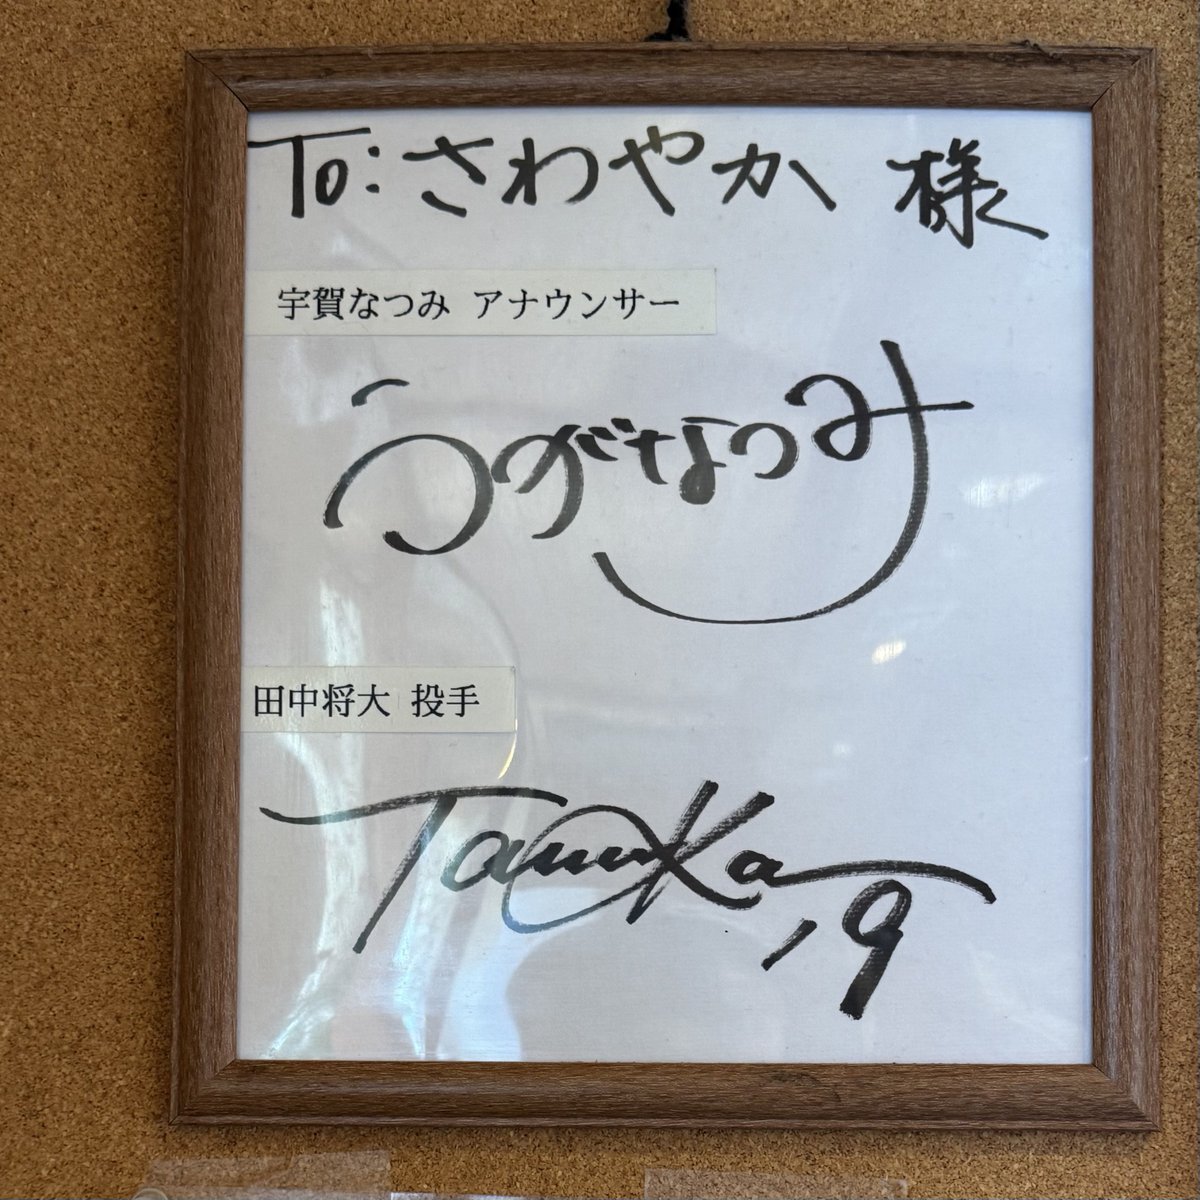 To: さわやか 様
宇賀なつみ アナウンサー
うがなつみ
田中将大 投手
TanaKa
19